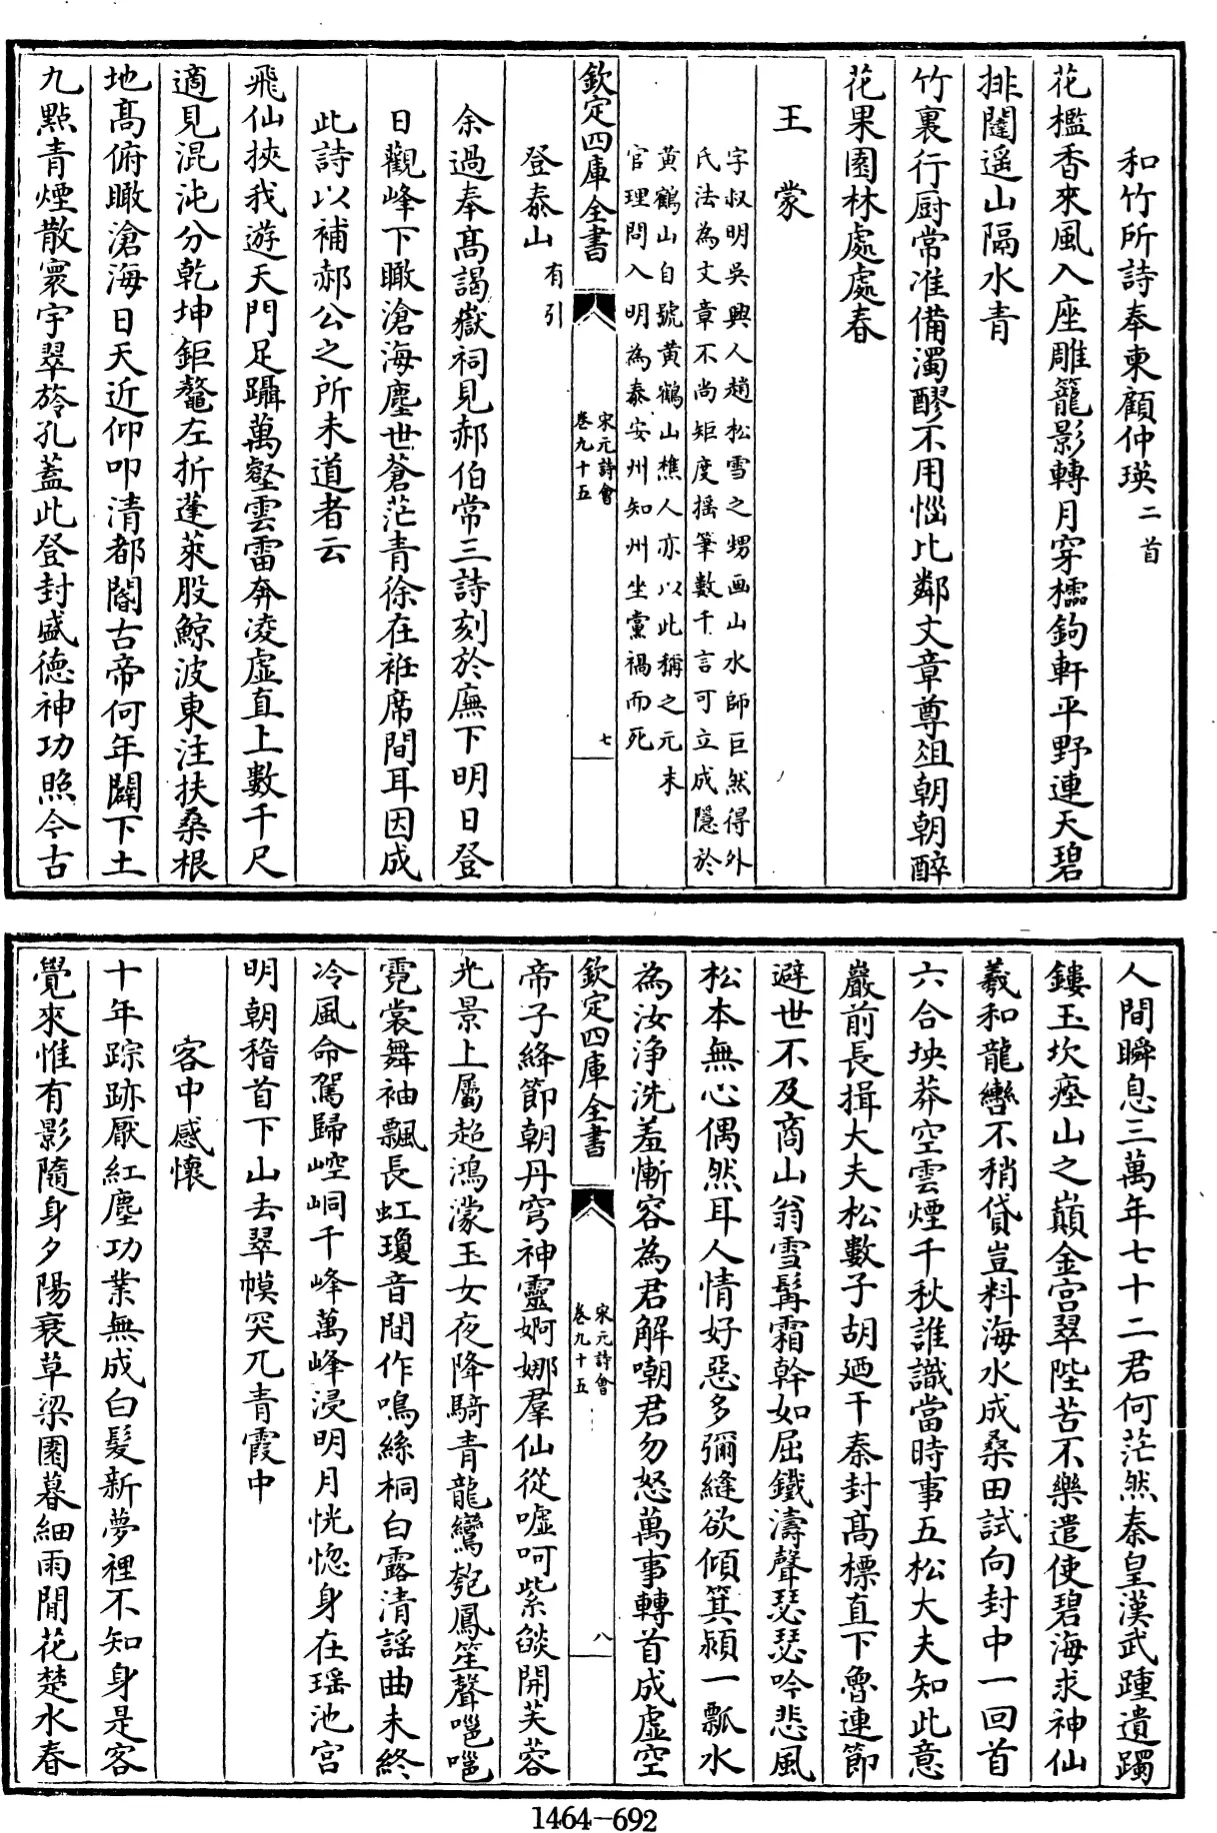 和竹所詩奉柬顧仲瑛二首
花檻香來風入座雕籠影轉月穿櫺鉤軒平野連天碧
排闥遥山隔水青
竹裏行厨常准備濁醪不用惱比鄰文章尊俎朝朝醉
花果園林處處春
王蒙
字叔明吳興人趙松雪之甥画山水師巨然得外
氏法為文章不尚矩度揺筆數千言可立成隱於
黄鶴山自號黄鶴山樵人亦以此稱之元末
官理問入明為泰安州知州坐黨禍而死
欽定四庫全書
宋元詩會
卷九十五
七
登泰山有引
余過奉髙謁嶽祠見郝伯常三詩刻於廡下明日登
日觀峰下瞰滄海塵世蒼茫青徐在袵席間耳因成
此詩以補郝公之所未道者云
飛仙挾我遊天門足躡萬壑雲雷奔凌虛直上數千尺
適見混沌分乾坤鉅鼇左折蓬萊股鯨波東注扶桑根
地髙俯瞰滄海日天近仰叩清都閽古帝何年闢下土
九點青煙散寰宇翠旍孔蓋此登封盛德神功照今古
人間瞬息三萬年七十二君何茫然秦皇漢武踵遺躅
鏤玉坎瘞山之巔金宫翠陛苦不樂遣使碧海求神仙
羲和龍轡不稍貸豈料海水成桑田試向封中一回首
六合坱莽空雲煙千秋誰識當時事五松大夫知此意
巖前長揖大夫松數子胡廼干秦封髙標直下魯連節
避世不及商山翁雪髯霜幹如屈鐵濤聲瑟瑟吟悲風
松本無心偶然耳人情好惡多彌縫欲傾箕潁一瓢水
為汝浄洗羞慚容為君解嘲君勿怒萬事轉首成虛空
欽定四庫全書
宋元詩會
卷九十五
八
帝子絳節朝丹穹神靈婀娜羣仙從嘘呵紫燄開芙蓉
光景上屬超鴻濛玉女夜降騎青龍鸞匏鳳笙聲嗈嗈
霓裳舞袖飄長虹瓊音間作鳴絲桐白露清謡曲未終
冷風命駕歸崆峒千峰萬峰浸明月恍惚身在瑶池宫
明朝稽首下山去翠幙突兀青霞中
客中感懷
十年踪跡厭紅塵功業無成白髮新夢裡不知身是客
覺來惟有影隨身夕陽衰草梁園暮細雨閒花楚水春
1464-692